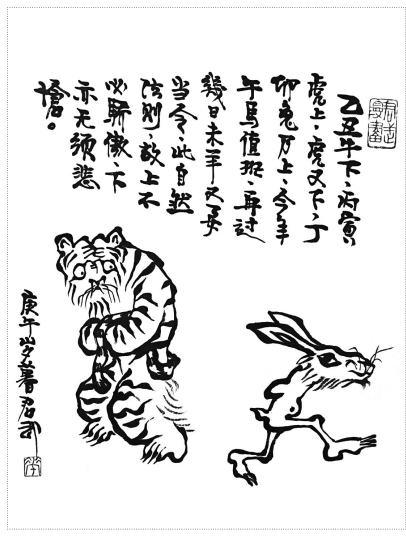 乙丑牛下，丙寅
虎上，虎又下，丁
卯兔上，今年
午马值班，再过
幾日未羊又要
当令，此自然
法则，故上不
必骄傲，下
亦无须悲
怆。
庚午岁暮君武